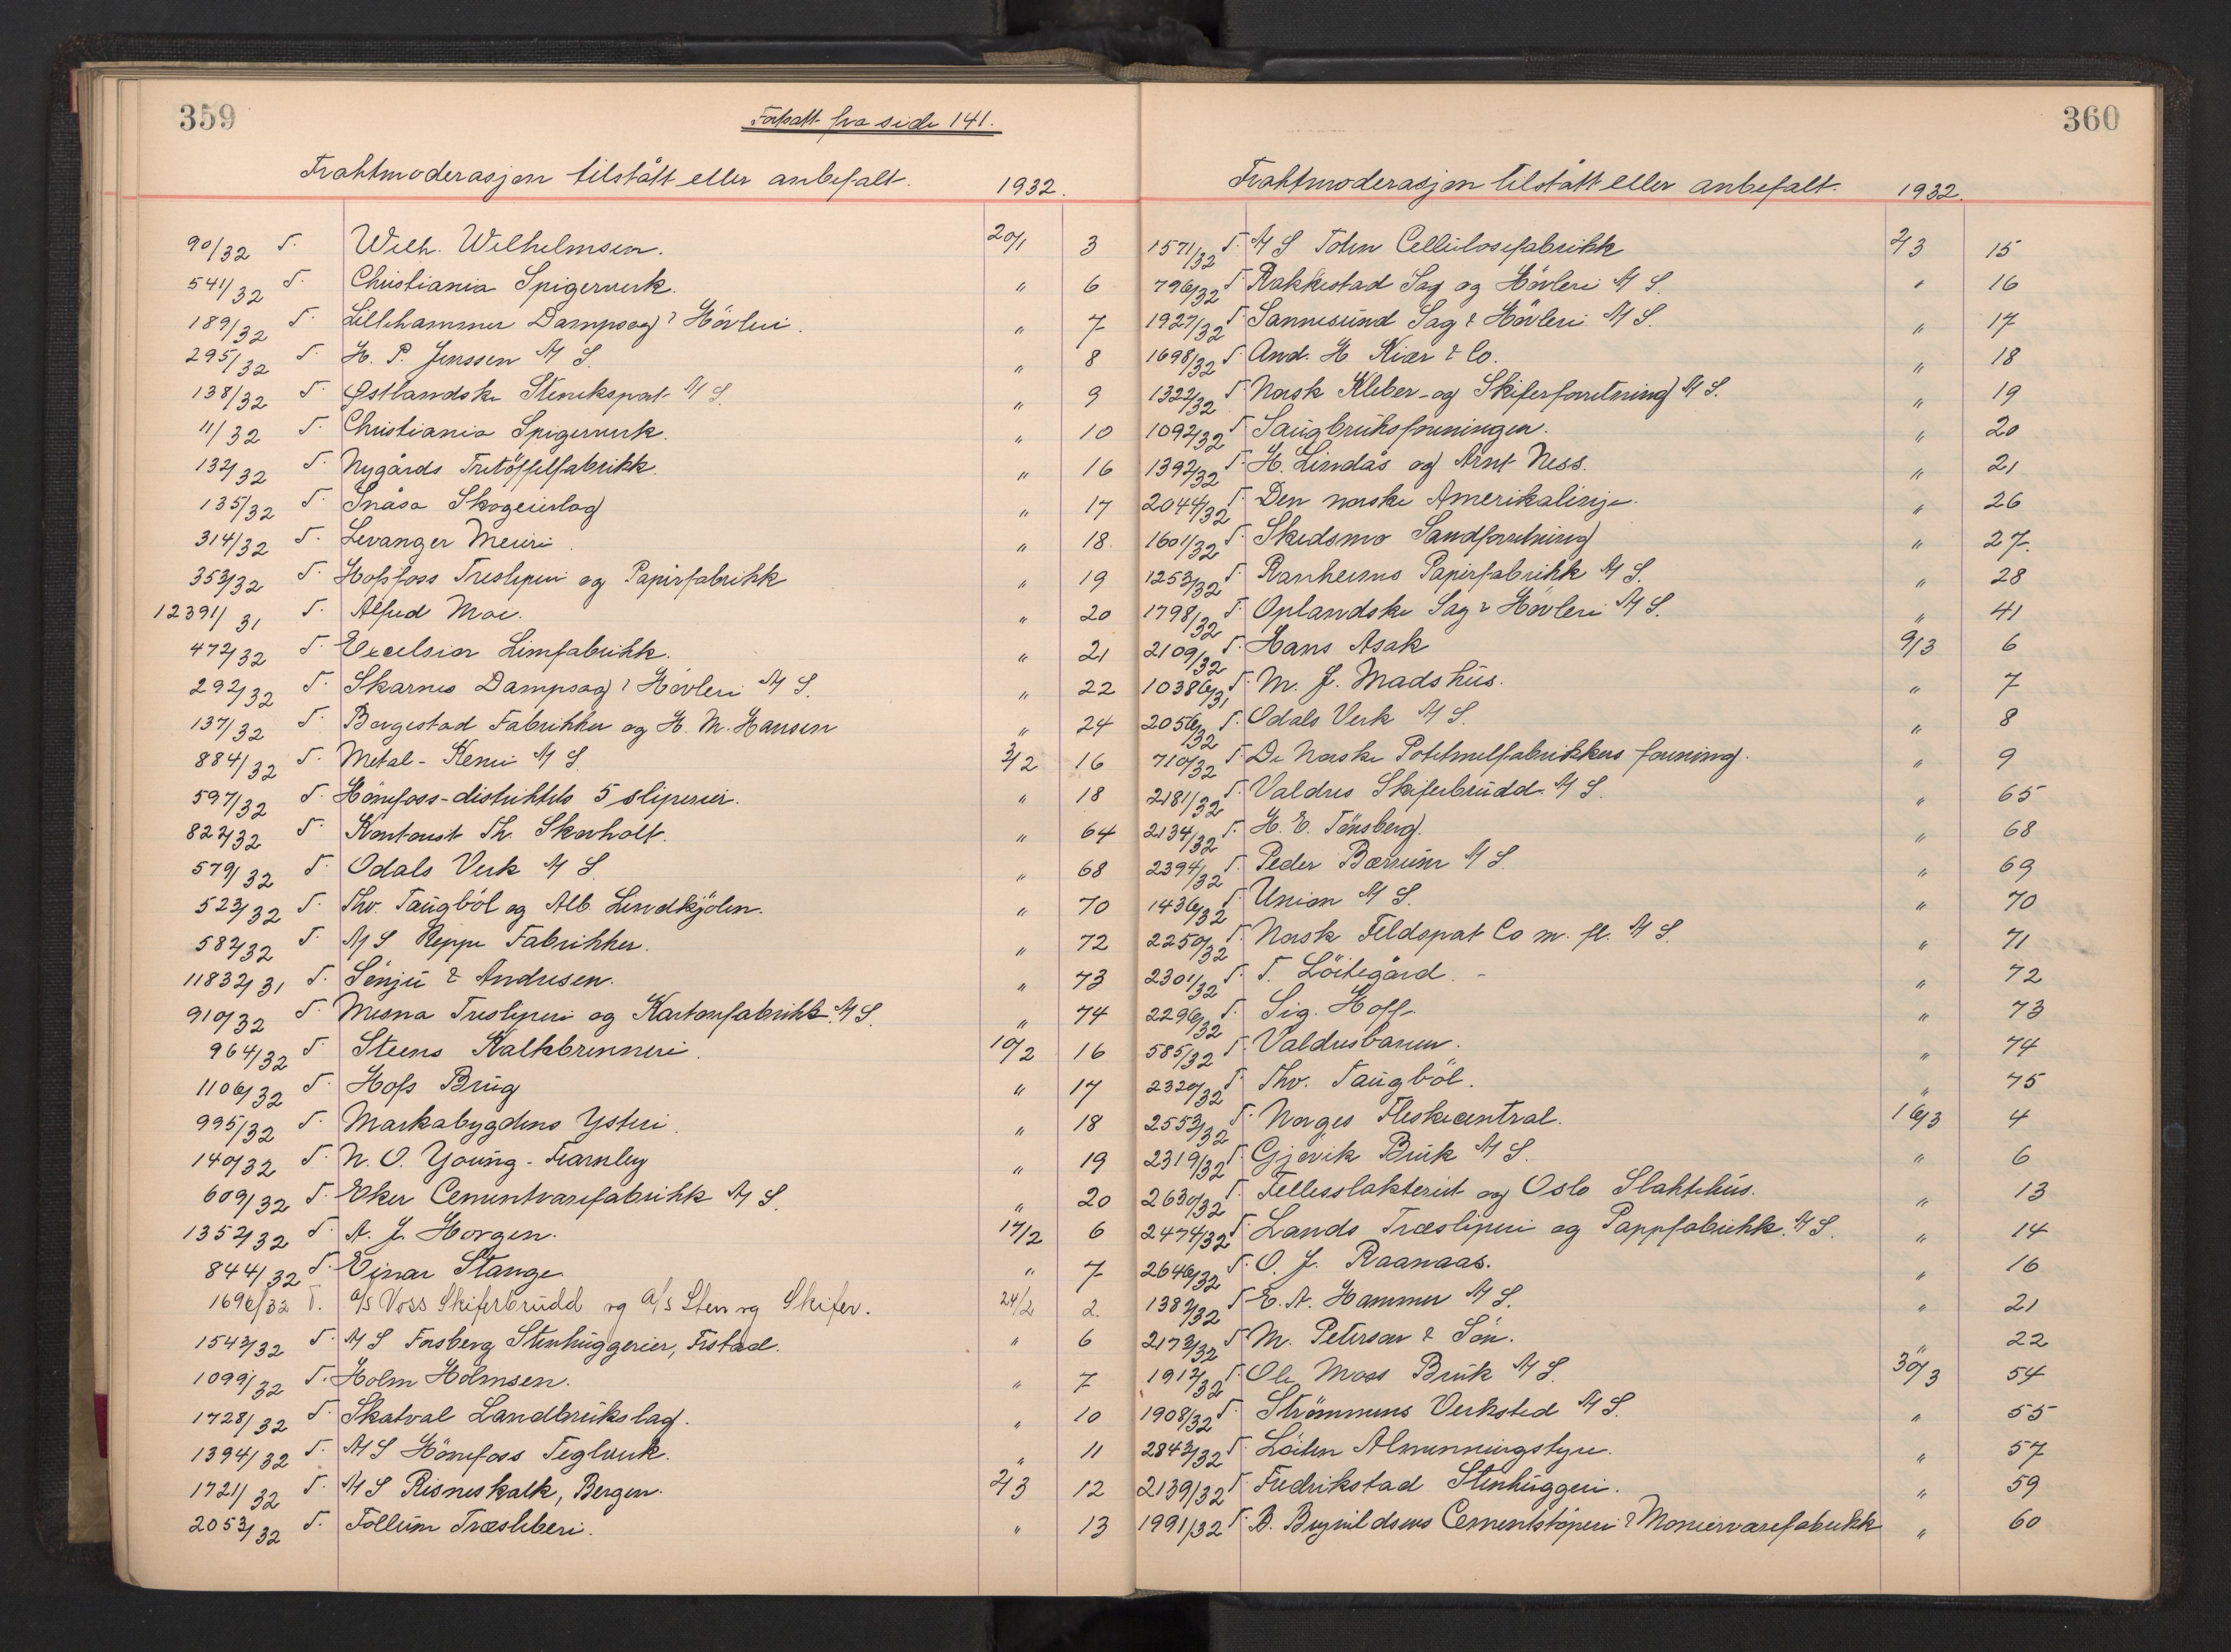 359
Fortsatt fra side 141.
Fraktmoderasjon tilstått eller anbefalt. 1932.
90/32 T. Wilh. Wilhelmsen. 20/1 3
541/32 T. Christiania Spigerverk. " 6
189/32 T. Lillehammer Dampsag & Hövleri. " 7
295/32 T. H. P. Jenssen A/S. " 8
138/32 T. Østlandske Steneksport A/S. " 9
11/32 T. Christiania Spigerverk. " 10
132/32 T. Nygårds Tretöffelfabrikk. " 16
135/32 T. Snåsa Skogeierlag " 17
314/32 T. Levanger Meieri. " 18
353/32 T. Hofsfoss Tresliperi og Papirfabrikk " 19
12391/31 T. Alfred Moe. " 20
472/32 T. Excelsior Limfabrikk. " 21
292/32 T. Skarnes Dampsag & Hövleri A/S. " 22
137/32 T. Borgestad Fabrikker og H. M. Hansen " 24
884/32 T. Metal-Kemi A/S 3/2 16
597/32 T. Hönefoss-distriktets 5 sliperier. " 18
822/32 T. Kontorist Th. Skovholt. " 64
579/32 T. Odals Verk A/S " 68
523/32 T. Thv. Taugböl og Alb. Lundkjölen. " 70
582/32 T. A/S Reppe Fabrikker. " 72
11832/31 T. Senju & Andresen. " 73
910/32 T. Mesna Tresliperi og Kartonfabrikk A/S. " 74
964/32 T. Steens Kalkbrenneri. 10/2 16
1106/32 T. Hofs Brug " 17
995/32 T. Markabygdens Ysteri. " 18
140/32 T. N. O. Young-Fearnley " 19
609/32 T. Eker Cementvarefabrikk A/S. " 20
1352/32 T. A. J. Horgen. 17/2 6
844/32 T. Einar Stange " 7
1696/32 T. A/S Voss Skiferbrudd og A/S Sten og Skifer. 24/2 2.
1543/32 T. A/S Forsberg Stenhuggerier, Fr.stad. " 6
1099/32 T. Holm Holmsen. " 7
1728/32 T. Skatval Landbrukslag. " 10
1394/32 T. A/S Hönefoss Teglverk. " 11
1721/32 T. A/S Risneskalk, Bergen. 2/3 12
2053/32 T. Follum Træsliberi. " 13
360
Fraktmoderasjon tilstått eller anbefalt. 1932.
1571/32 T. A/S Toten Cellulosefabrikk 2/3 15
796/32 T. Rakkestad Sag og Hövleri A/S. " 16
1927/32 T. Sannesund Sag & Hövleri A/S. " 17
1698/32 T. And. H. Kiær & Co. " 18
1322/32 T. Norsk Kleber- og Skiferforretning A/S. " 19
1092/32 T. Saugbruksforeningen. " 20
1392/32 T. H. Lindås og Arnt Ness. " 21
2044/32 T. Den norske Amerikalinje. " 26
1601/32 T. Skedsmo Sandforretning " 27.
1253/32 T. Ranheims Papirfabrikk A/S. " 28
1798/32 T. Oplandske Sag & Hövleri A/S. " 41
2109/32 T. Hans Asak 9/3 6
10386/31 T. M. J. Madshus. " 7
2056/32 T. Odals Verk A/S. " 8
710/32 T. De Norske Potetmelfabrikkers forening. " 9
2181/32 T. Valdres Skiferbrudd A/S. " 65
2134/32 T. H. E. Tönsberg. " 68
2394/32 T. Peder Bærrum A/S " 69
1436/32 T. Union A/S. " 70
2250/32 T. Norsk Feldspat Co m. fl. A/S. " 71
2301/32 T. T. Löitegård. " 72
2296/32 T. Sig. Hoff " 73
585/32 T. Valdresbanen. " 74
2320/32 T. Thv. Taugböl. " 75
2553/32 T. Norges Fleskecentral. 16/3 4
2319/32 T. Gjövik Bruk A/S. " 6
2630/32 T. Fellesslakteriet og Oslo Slaktehus. " 13
2474/32 T. Lands Træsliperi og Pappfabrikk A/S. " 14
2646/32 T. O. J. Raanaas. " 16
1382/32 T. E. A. Hammer A/S. " 21
2173/32 T. M. Peterson & Sön. " 22
1912/32 T. Ole Moss Bruk A/S. 30/3 54
1908/32 T. Strömmens Verksted A/S. " 55
2843/32 T. Löiten Almenningstyre. " 57
2139/32 T. Fredrikstad Stenhuggeri. " 59
1991/32 T. B. Brynildsens Cementstöperi & Moniervarefabrikk " 60